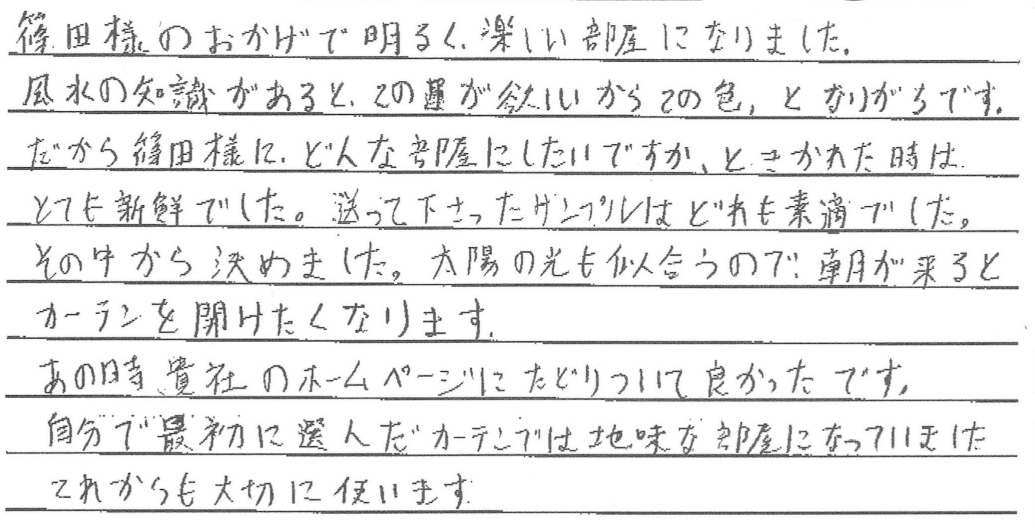 篠田様のおかげで明るく、楽しい部屋になりました。
風水の知識があると、この運が欲しいからこの色、となりがちです。
だから篠田様に、どんな部屋にしたいですか、ときかれた時は
とても新鮮でした。送って下さったサンプルはどれも素適でした。
その中から決めました。太陽の光も似合うので、朝が来ると
カーテンを開けたくなります。
あの時、貴社のホームページにたどりついて良かったです。
自分で最初に選んだカーテンでは地味な部屋になっていました
これからも大切に使います。